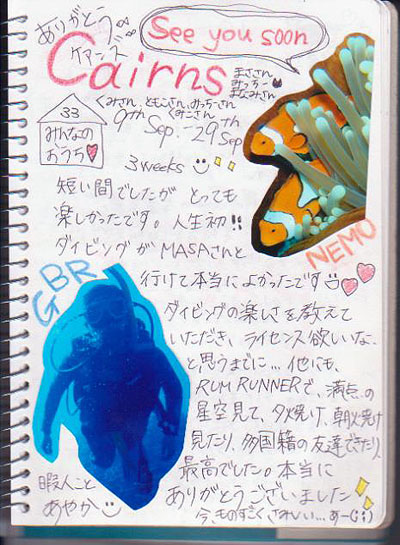 ありがとう
ケアンズ
See you soon
Cairns
まささん
みっちー
まなみさん
くみさん、ともこさん、みっちーさん
くまこさん
9th Sep.-29th Sep
33
みんなの
おうち
3weeks
短い間でしたが とっても
楽しかったです。人生初!!
ダイビングが MASAさんと
NEMO
GBR
行けて本当によかったです
ダイビングの楽しさを教えて
いただき、ライセンス欲しいな。
と思うまでに...他にも、
RUM RUNNERで、満点の
星空見て、夕焼け、朝焼け
見たり、多国籍の友達できたり、
最高でした。本当に
ありがとうございました
暇人こと
あやか
今、ものすごくさみしい...あー(;;)